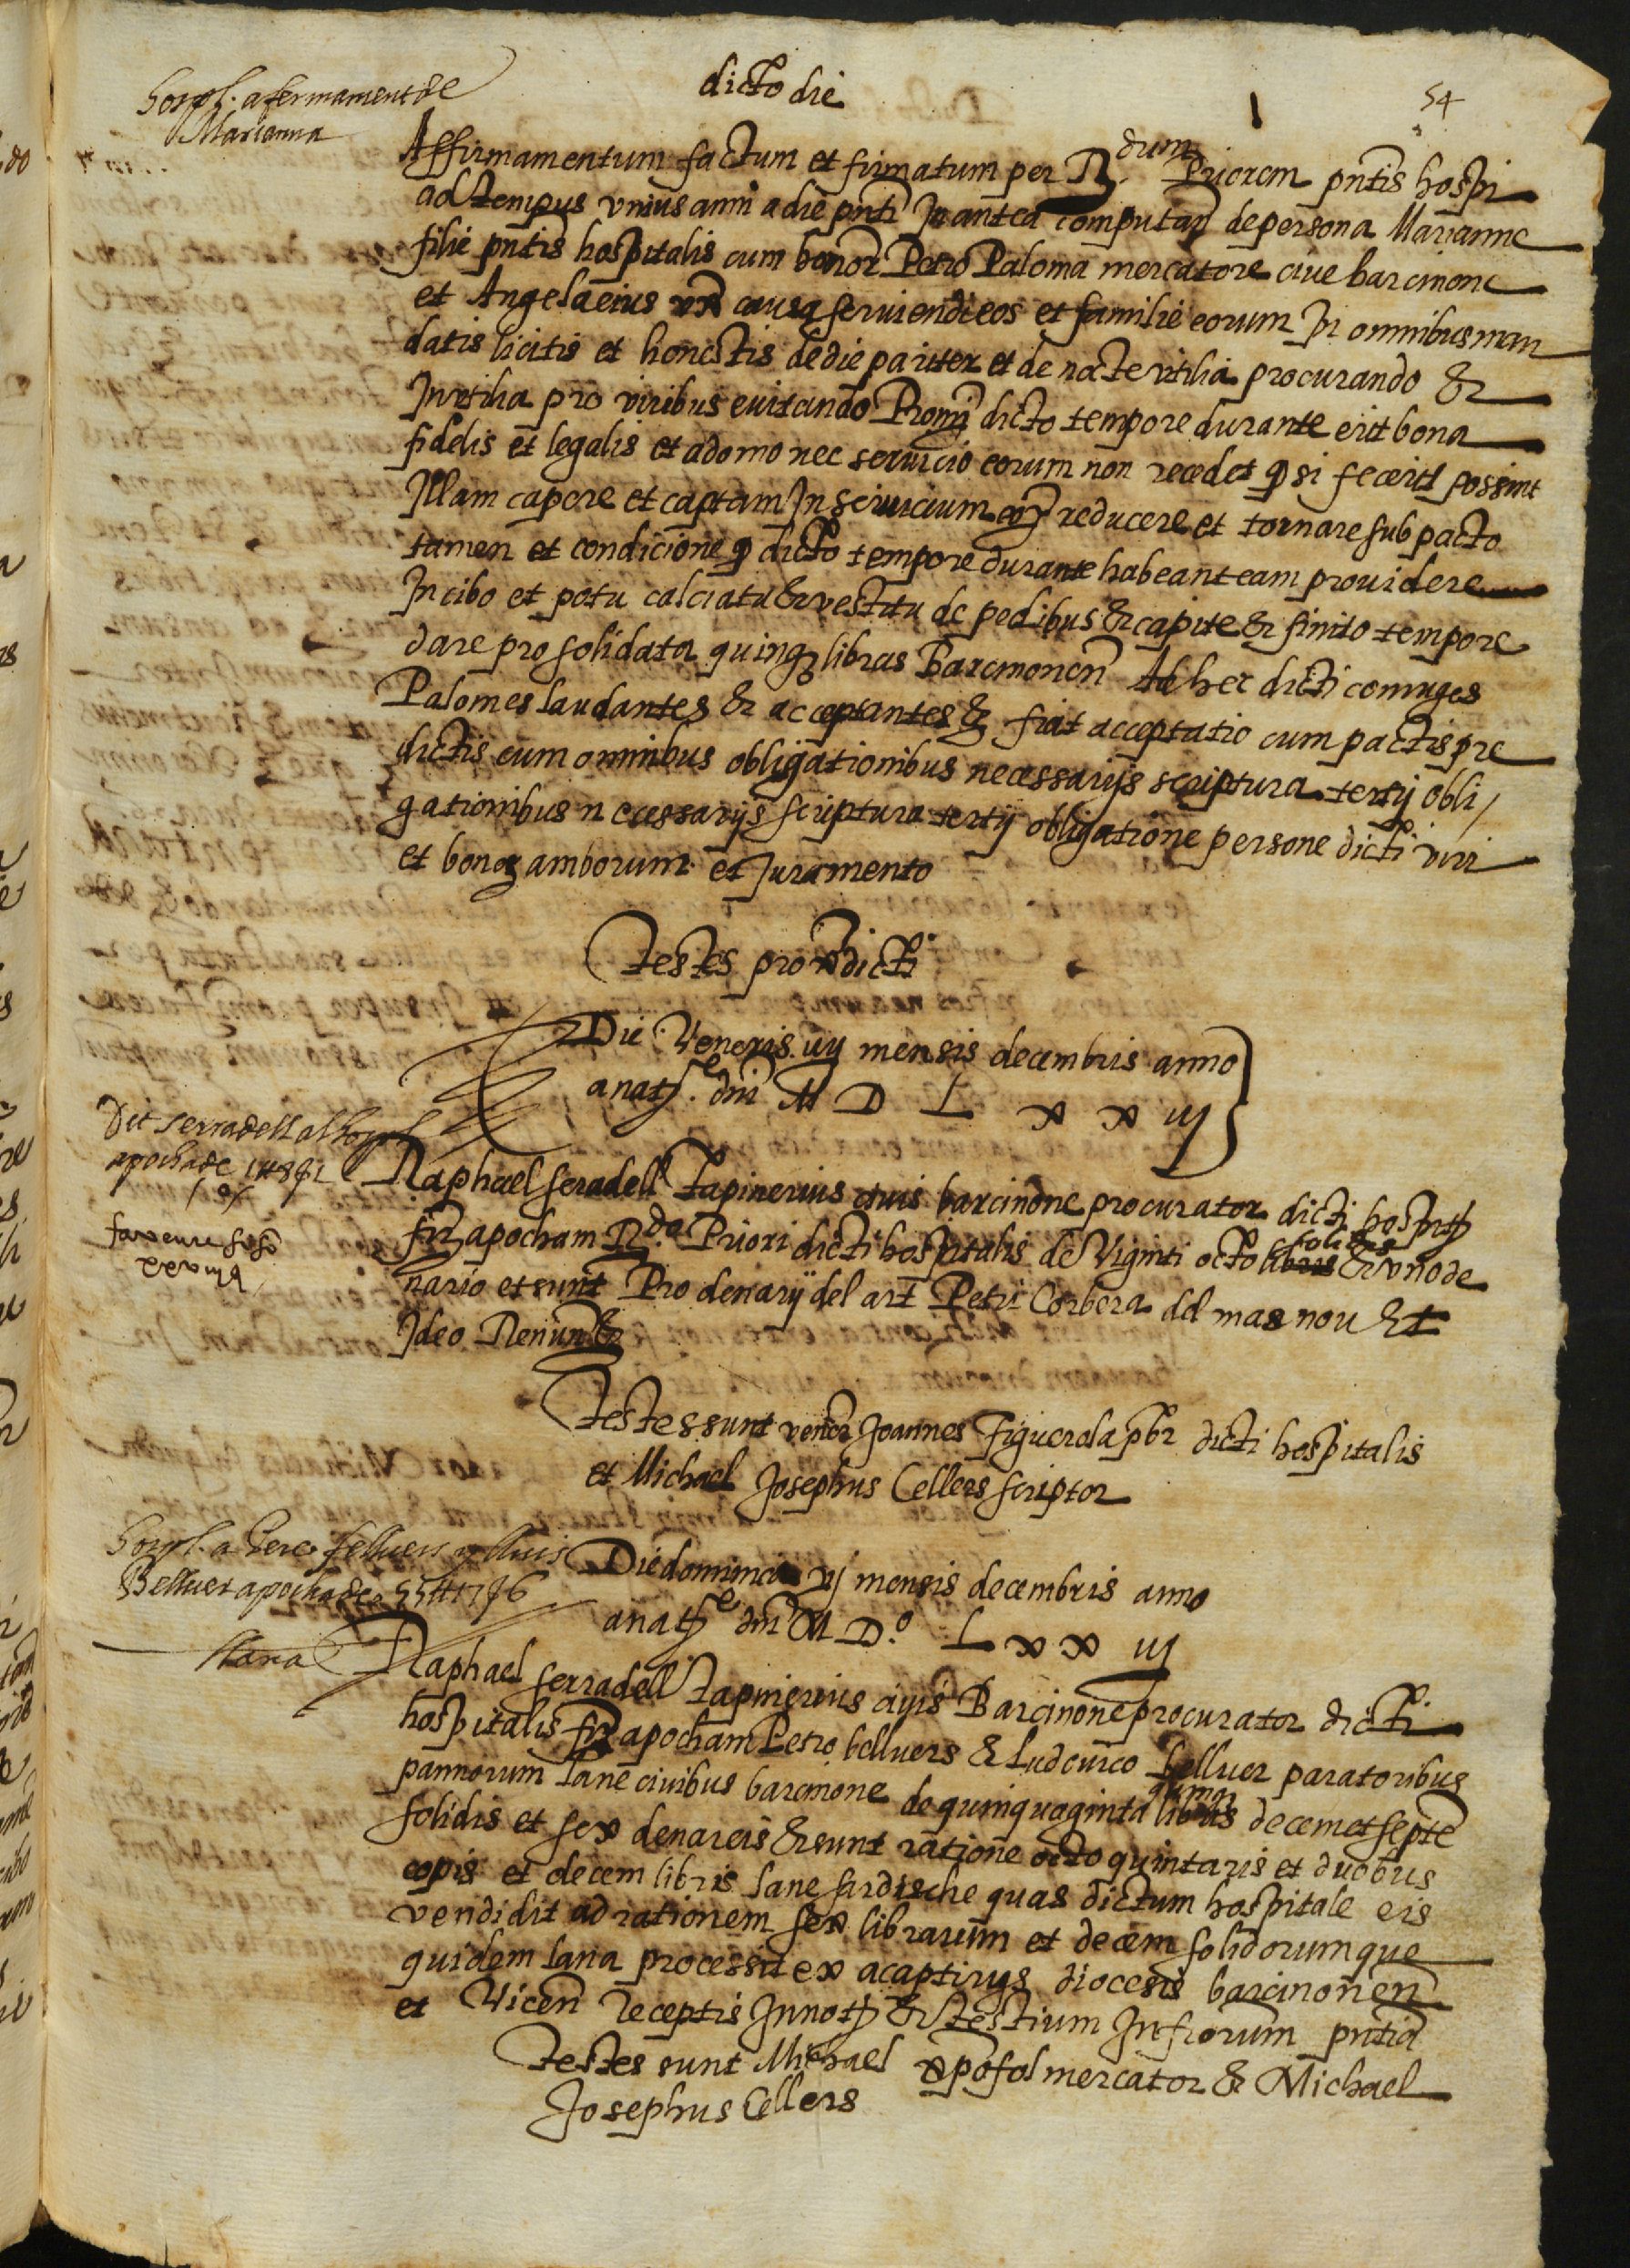 dicto die
54
hospl. afermament de
Marianna
Affirmamentum factum et firmatum per R.dum Priorem pntis hospi
ad tempus vnius anni a die pnti In antea computan de persona Marianne
filie pntis hospitalis cum honor Petro Paloma mercatore ciue barcinone
et Angela eius vx causa seruiendi eos et familie eorum In omnibus man
datis licitis et honestis de die pariter et de nocte vtilia procurando &
Inutilia pro viribus euitando Promi dicto tempore durante erit bona
fidelis et legalis et a domo nec seruicio eorum non recedet q si fecerit possint
Illam capere et captam In seruicium eor reducere et tornare sub pacto
tamen et condicione q dicto tempore durante habeant eam prouidere
In cibo et potu calciatu & vestitu de pedibus & capite & finito tempore
dare pro solidata quinq libras Barcinonen Ad hec dicti coniuges
Palomes laudantes & acceptantes & fiat acceptatio cum pactis pre
dictis cum omnibus obligationibus necessarijs scriptura tertij obli/
gationibus necessarijs scriptura tertij obligatione persone dicti viri
et bonor amborum et Juramento
Testes proxdicti
Die Veneris iiij mensis decembris anno
anatj. dni M D L x x iij
Dit serradell al hospl
apocha de
Raphael seradell Tapinerius ciuis barcinone procurator dicti hospitj
fir apocham R.do Priori dicti hospitalis de Viginti octo libris solidis & vno de
nario et sunt Pro denarij del art Petri Corbera del mas nou Et
Ideo Renun &
Testes sunt vener Joannes Figuerola pbr dicti hospitalis
et Michael Josephus Cellers scriptor
hospl. a Pere belluers y lluis
Belluer apocha de 55 ll 17 s 6
llana
Die dominica vj mensis decembris anno
anatj e dni M D.o L x x iij
Raphael serradell Tapinerius ciuis Barcinone procurator dicti
hospitalis fir apocham Petro belluers & Ludouico belluer paratoribus
pannorum lane ciuibus barcinone de quinquaginta quinq libris decem et septe
solidis et sex denareis & sunt ratione octo quintaris et duobus
copis et decem libris lane sardische quas dictum hospitale eis
vendidit ad rationem sex librarum et decem solidorum que
quidem lana processit ex acaptirijs diocesis barcinonen
et Vicen receptis In notj & testium Infrorum pntia
Testes sunt Michael xpofol mercator & Michael
Josephus Cellers